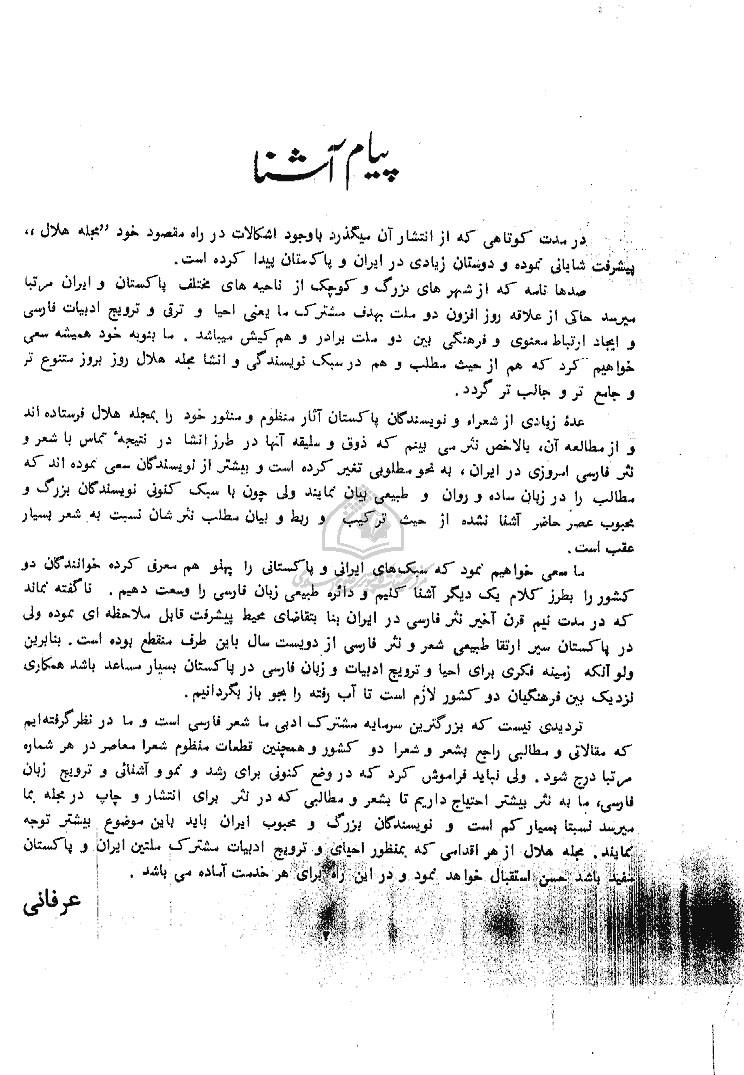 پیام آشنا
در مدت کوتاهی که از انتشار آن میگذرد باوجود اشکالات در راه مقصود خود ”مجله هلال ،،
پیشرفت شایانی نموده و دوستان زیادی در ایران و پاکستان پیدا کرده است.
صدها نامه که از شهر های بزرگ و کوچک از ناحیه های مختلف پاکستان و ایران مرتبا
میرسد حاکی از علاقه روز افزون دو ملت بهدف مشترک ما یعنی احیا و ترقی و ترویج ادبیات فارسی
و ایجاد ارتباط معنوی و فرهنگی بین دو ملت برادر و هم کیش میباشد . ما بنوبه خود همیشه سعی
خواهیم کرد که هم از حیث مطلب و هم در سبک نویسندگی و انشا مجله هلال روز بروز متنوع تر
و جامع تر و جالب تر گردد.
عدهٔ زیادی از شعراء و نویسندگان پاکستان آثار منظوم و منثور خود را بمجله هلال فرستاده اند
و از مطالعه آن، بالاخص نثر می بینم که ذوق و سلیقه آنها در طرز انشا در نتیجهٔ تماس با شعر و
نثر فارسی امروزی در ایران ، به نحو مطلوبی تغیر کرده است و بیشتر از نویسندگان سعی نموده اند که
مطالب را در زبان ساده و روان و طبیعی بیان نمایند ولی چون با سبک کنونی نویسندگان بزرگ و
محبوب عصر حاضر آشنا نشده از حیث ترکیب و ربط و بیان مطلب نثر شان نسبت به شعر بسیار
عقب است.
ما سعی خواهیم نمود که سبک‌های ایرانی و پاکستانی را پهلو هم معرفی کرده خوانندگان دو
کشور را بطرز کلام یک دیگر آشنا کنیم و دائره طبیعی زبان فارسی را وسعت دهیم . ناگفته نماند
که در مدت نیم قرن آخیر نثر فارسی در ایران بنا بتقاضای محیط پیشرفت قابل ملاحظه ای نموده ولی
در پاکستان سیر ارتقا طبیعی شعر و نثر فارسی از دویست سال باین طرف منقطع بوده است . بنابرین
ولو آنکه زمینه فکری برای احیا و ترویج ادبیات و زبان فارسی در پاکستان بسیار مساعد باشد همکاری
نزدیک بین فرهنگیان دو کشور لازم است تا آب رفته را بجو باز بگردانیم.
تردیدی نیست که بزرگترین سرمایه مشترک ادبی ما شعر فارسی است و ما در نظر گرفته‌ایم
که مقالاتی و مطالبی راجع بشعر و شعرا دو کشور و همچنین قطعات منظوم شعرا معاصر در هر شماره
مرتبا درج شود . ولی نباید فراموش کرد که در وضع کنونی برای رشد و نمو و آشنائی و ترویج زبان
فارسی، ما به نثر بیشتر احتیاج داریم تا بشعر و مطالبی که در نثر برای انتشار و چاپ در مجله بما
میرسد نسبتا بسیار کم است و نویسندگان بزرگ و محبوب ایران باید باین موضوع بیشتر توجه
نمایند. مجله هلال از هر اقدامی که بمنظور احیای و ترویج ادبیات مشترک ملتین ایران و پاکستان
مفید باشد حسن استقبال خواهد نمود و در این راه برای هر خدمت آماده می باشد .
عرفانی